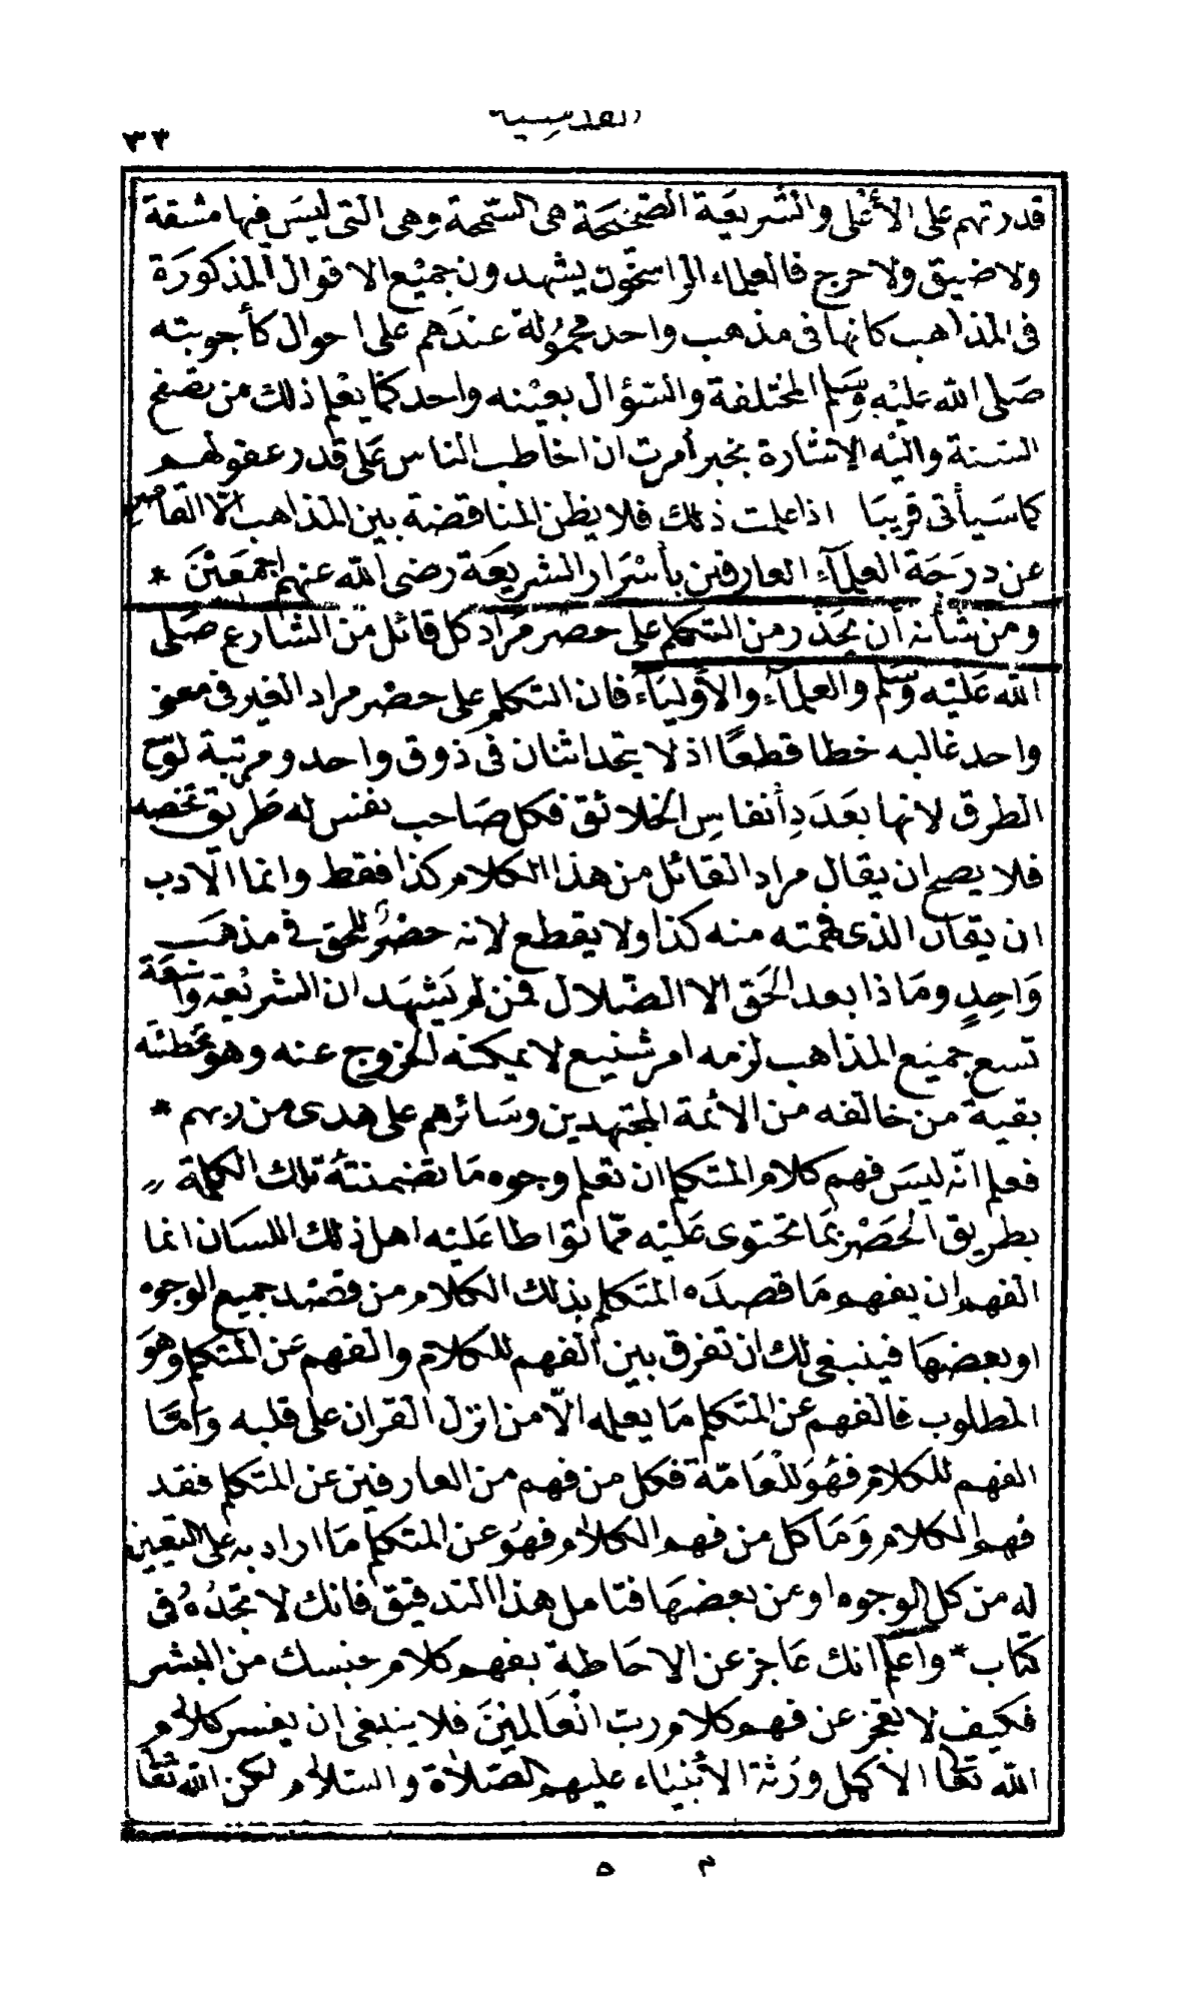 القدسية
٣٣
قدرتهم على الأعلى والشريعة الصحيحة هى السمحة وهى التى ليس فيها مشقة
ولا ضيق ولا حرج فالعلماء الراسخون يشهدون جميع الاقوال المذكورة
فى المذاهب كانها فى مذهب واحد محمولة عندهم على احوال كأجوبته
صلى الله عليه وسلم المختلفة والسؤال بعينه واحد كما يعلم ذلك من تصفح
السنة واليه الاشارة بخبر أمرت ان اخاطب الناس على قدر عقولهم
كما سيأتى قريبا اذا علمت ذلك فلا يظن المناقضة بين المذاهب الّا القاصر
عن درجة العلمآء العارفين بأسرار الشريعة رضى الله عنهم اجمعين *
ومن شأنه أن يحذر من التكلم على حصر مراد كل قائل من الشارع صلى
الله عليه وسلم والعلمآء والأوليآء فان التكلم على حصر مراد الغير فى معنى
واحد غالبه خطا قطعًا اذ لا يتحد اثنان فى ذوق واحد ومرتبة لتوسع
الطرق لانها بعدد أنفاس الخلائق فكل صاحب نفس له طريق تخصه
فلا يصح ان يقال مراد القائل من هذا الكلام كذا فقط وانما الادب
ان يقال الذى فهمته منه كذا ولا يقطع لانه حصرٌ للحق فى مذهب
واحدٍ وماذا بعد الحق الا الضلال فمن لم يشهد ان الشريعة واسعة
تسع جميع المذاهب لزمه امر شنيع لا يمكنه الخروج عنه وهو تخطئة
بقية من خالفه من الأئمة المجتهدين وسائرهم على هدى من ربهم *
فعلم انّه ليس فهم كلام المتكلم ان تعلم وجوه ما تضمنته تلك الكلمة
بطريق الحصر بما تحتوى عليه مما تواطا عليه اهل ذلك اللسان انما
الفهم ان يفهم ما قصده المتكلم بذلك الكلام من قصد جميع الوجوه
او بعضها فينبغى لك ان تفرق بين الفهم للكلام والفهم عن المتكلم وهو
المطلوب فالفهم عن المتكلم ما يعلمه الّا من انزل القران على قلبه وامّا
الفهم للكلام فهو للعامّة فكل من فهم من العارفين عن المتكلم فقد
فهم الكلام وما كل من فهم الكلام فهو عن المتكلم ما اراد به على التعيين
له من كل الوجوه او عن بعضها فتامل هذا التدقيق فانك لا تجدهُ فى
كتاب * واعلم انك عاجز عن الاحاطة بفهم كلام جنسك من البشر
فكيف لا تعجز عن فهم كلام رب العالمين فلا ينبغى ان يفسر كلام
الله تعالى الا كمل ورثة الأنبياء عليهم الصلاة والسلام لكن الله تعالى
م ٥